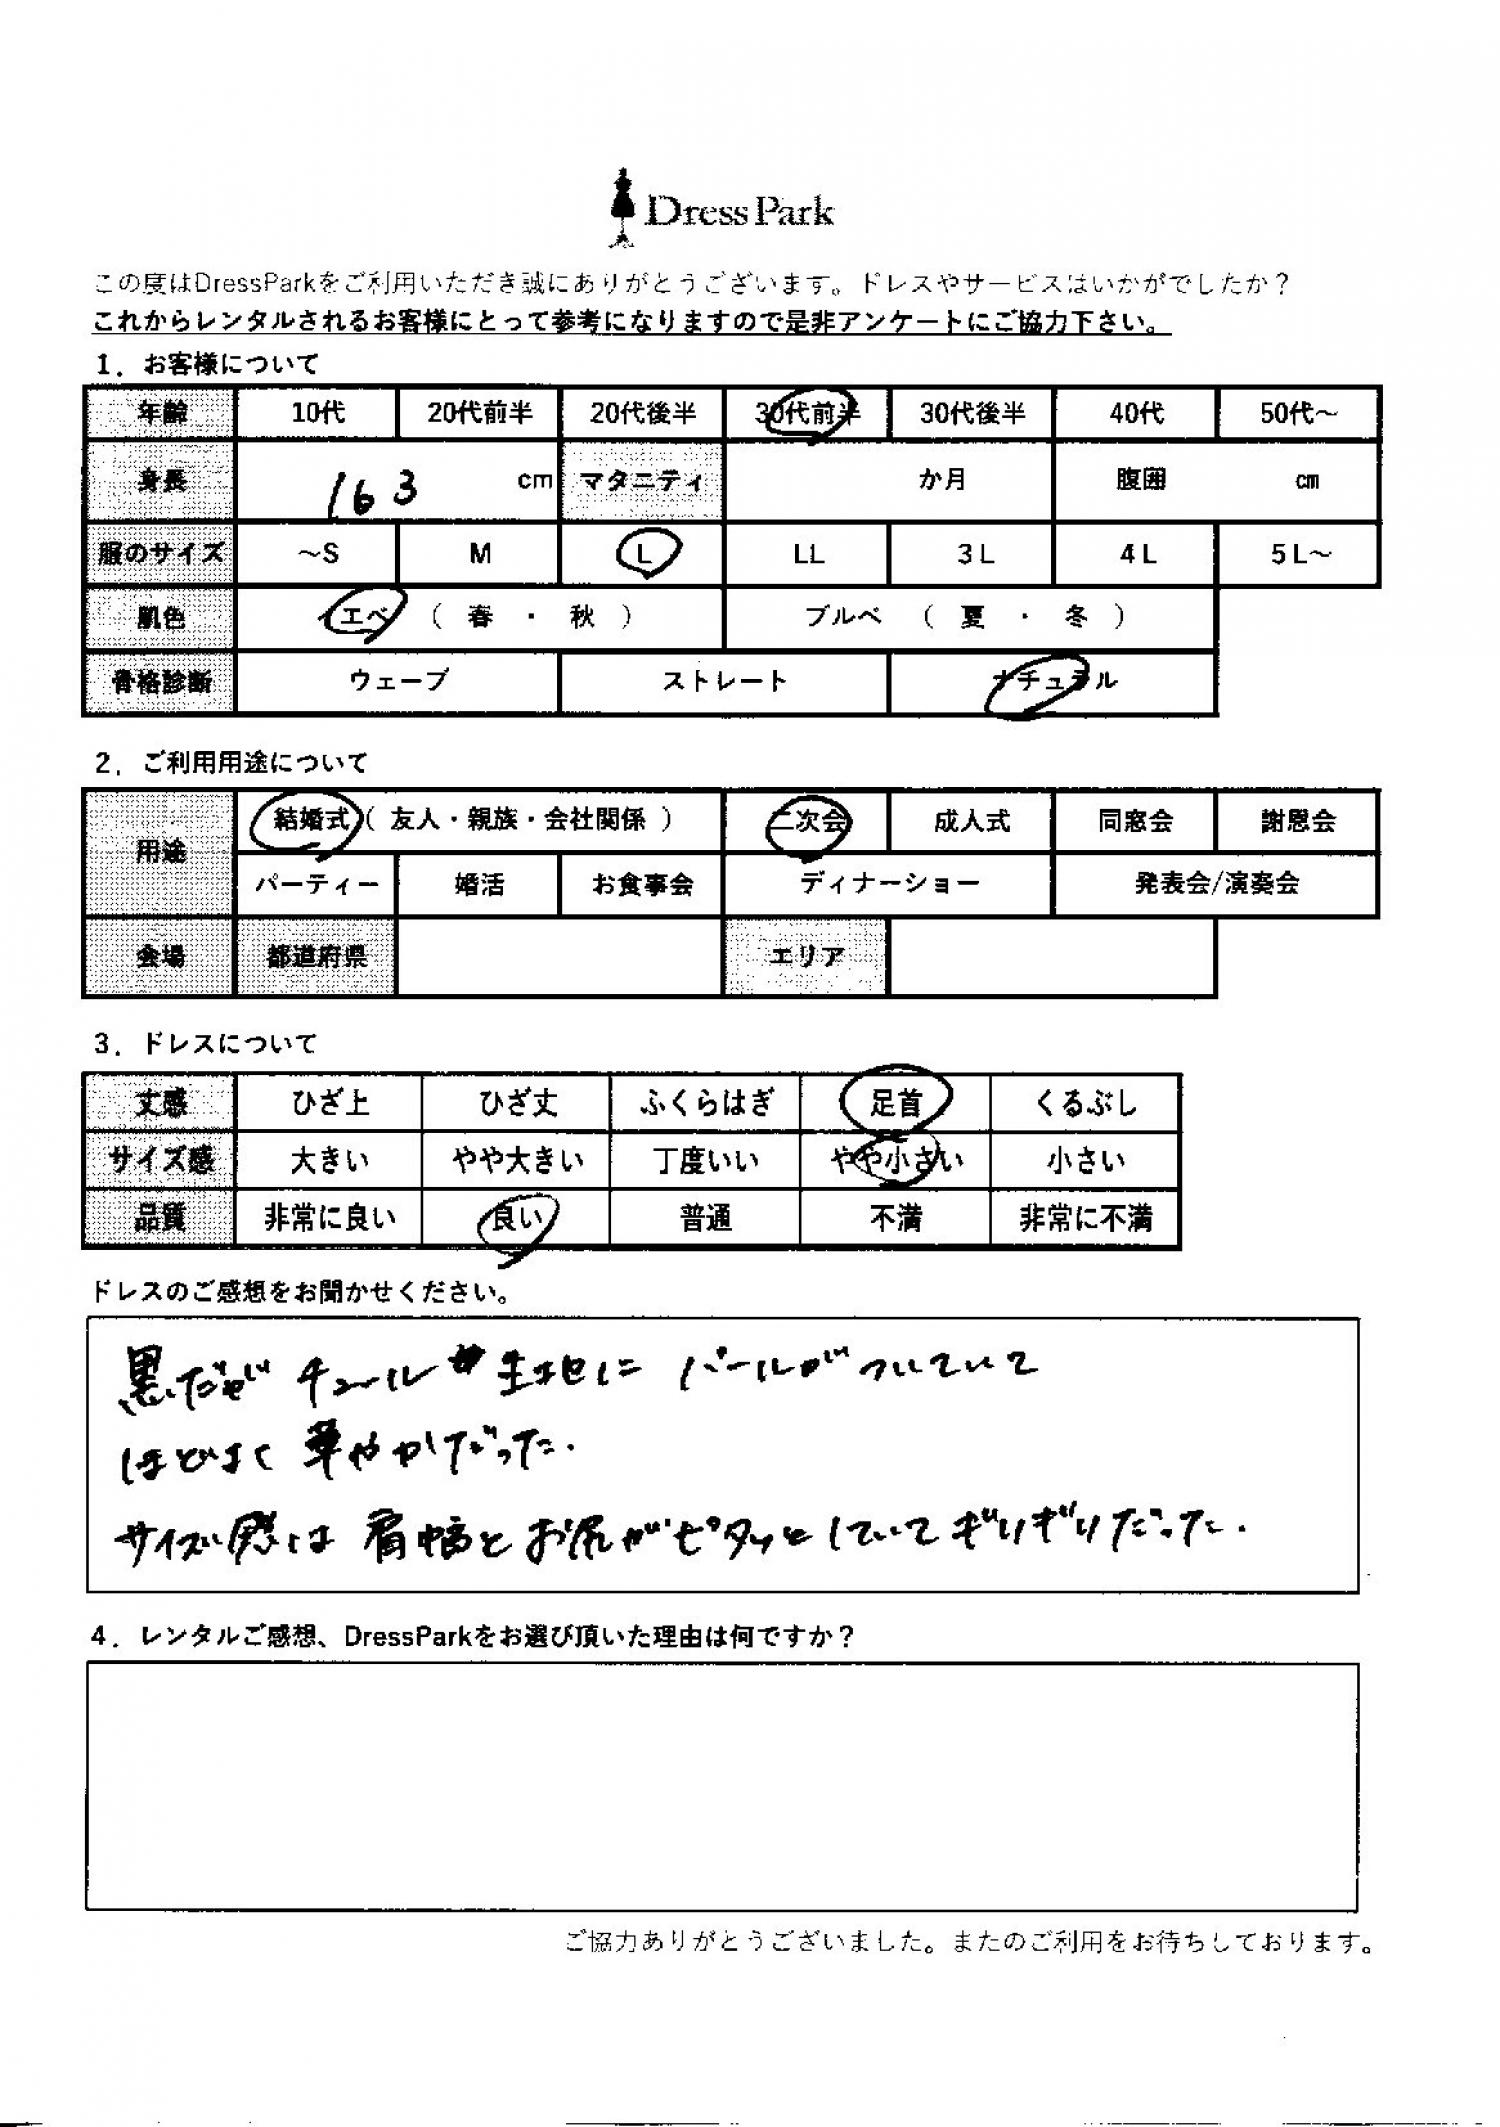 Dress Park
この度はDressParkをご利用いただき誠にありがとうございます。ドレスやサービスはいかがでしたか？
これからレンタルされるお客様にとって参考になりますので是非アンケートにご協力下さい。
1．お客様について
年齢 10代 20代前半 20代後半 30代前半 30代後半 40代 50代～
身長 163 cm マタニティ か月 腹囲 cm
服のサイズ ～S M L LL 3L 4L 5L～
肌色 イエベ （ 春 ・ 秋 ） ブルベ （ 夏 ・ 冬 ）
骨格診断 ウェーブ ストレート ナチュラル
2．ご利用用途について
用途 結婚式（ 友人・親族・会社関係 ） 二次会 成人式 同窓会 謝恩会
パーティー 婚活 お食事会 ディナーショー 発表会/演奏会
会場 都道府県 エリア
3．ドレスについて
丈感 ひざ上 ひざ丈 ふくらはぎ 足首 くるぶし
サイズ感 大きい やや大きい 丁度いい やや小さい 小さい
品質 非常に良い 良い 普通 不満 非常に不満
ドレスのご感想をお聞かせください。
黒だがチュール生地にパールがついていて
ほどよく華やかだった.
サイズ感は肩幅とお尻がピタッとしていてギリギリだった.
4．レンタルご感想、DressParkをお選び頂いた理由は何ですか？
ご協力ありがとうございました。またのご利用をお待ちしております。